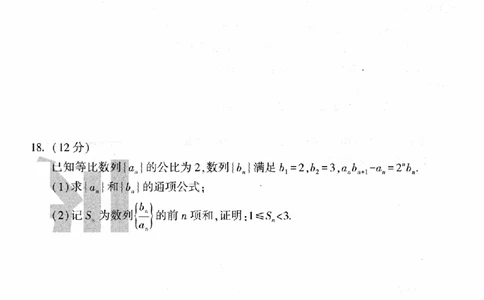 18. (12分)
已知等比数列{aₙ}的公比为2,数列{bₙ}满足b₁=2,b₂=3,aₙbₙ₊₁-aₙ=2ⁿbₙ.
(1)求{aₙ}和{bₙ}的通项公式;
(2)记Sₙ为数列{bₙ/aₙ}的前n项和,证明:1≤Sₙ<3.